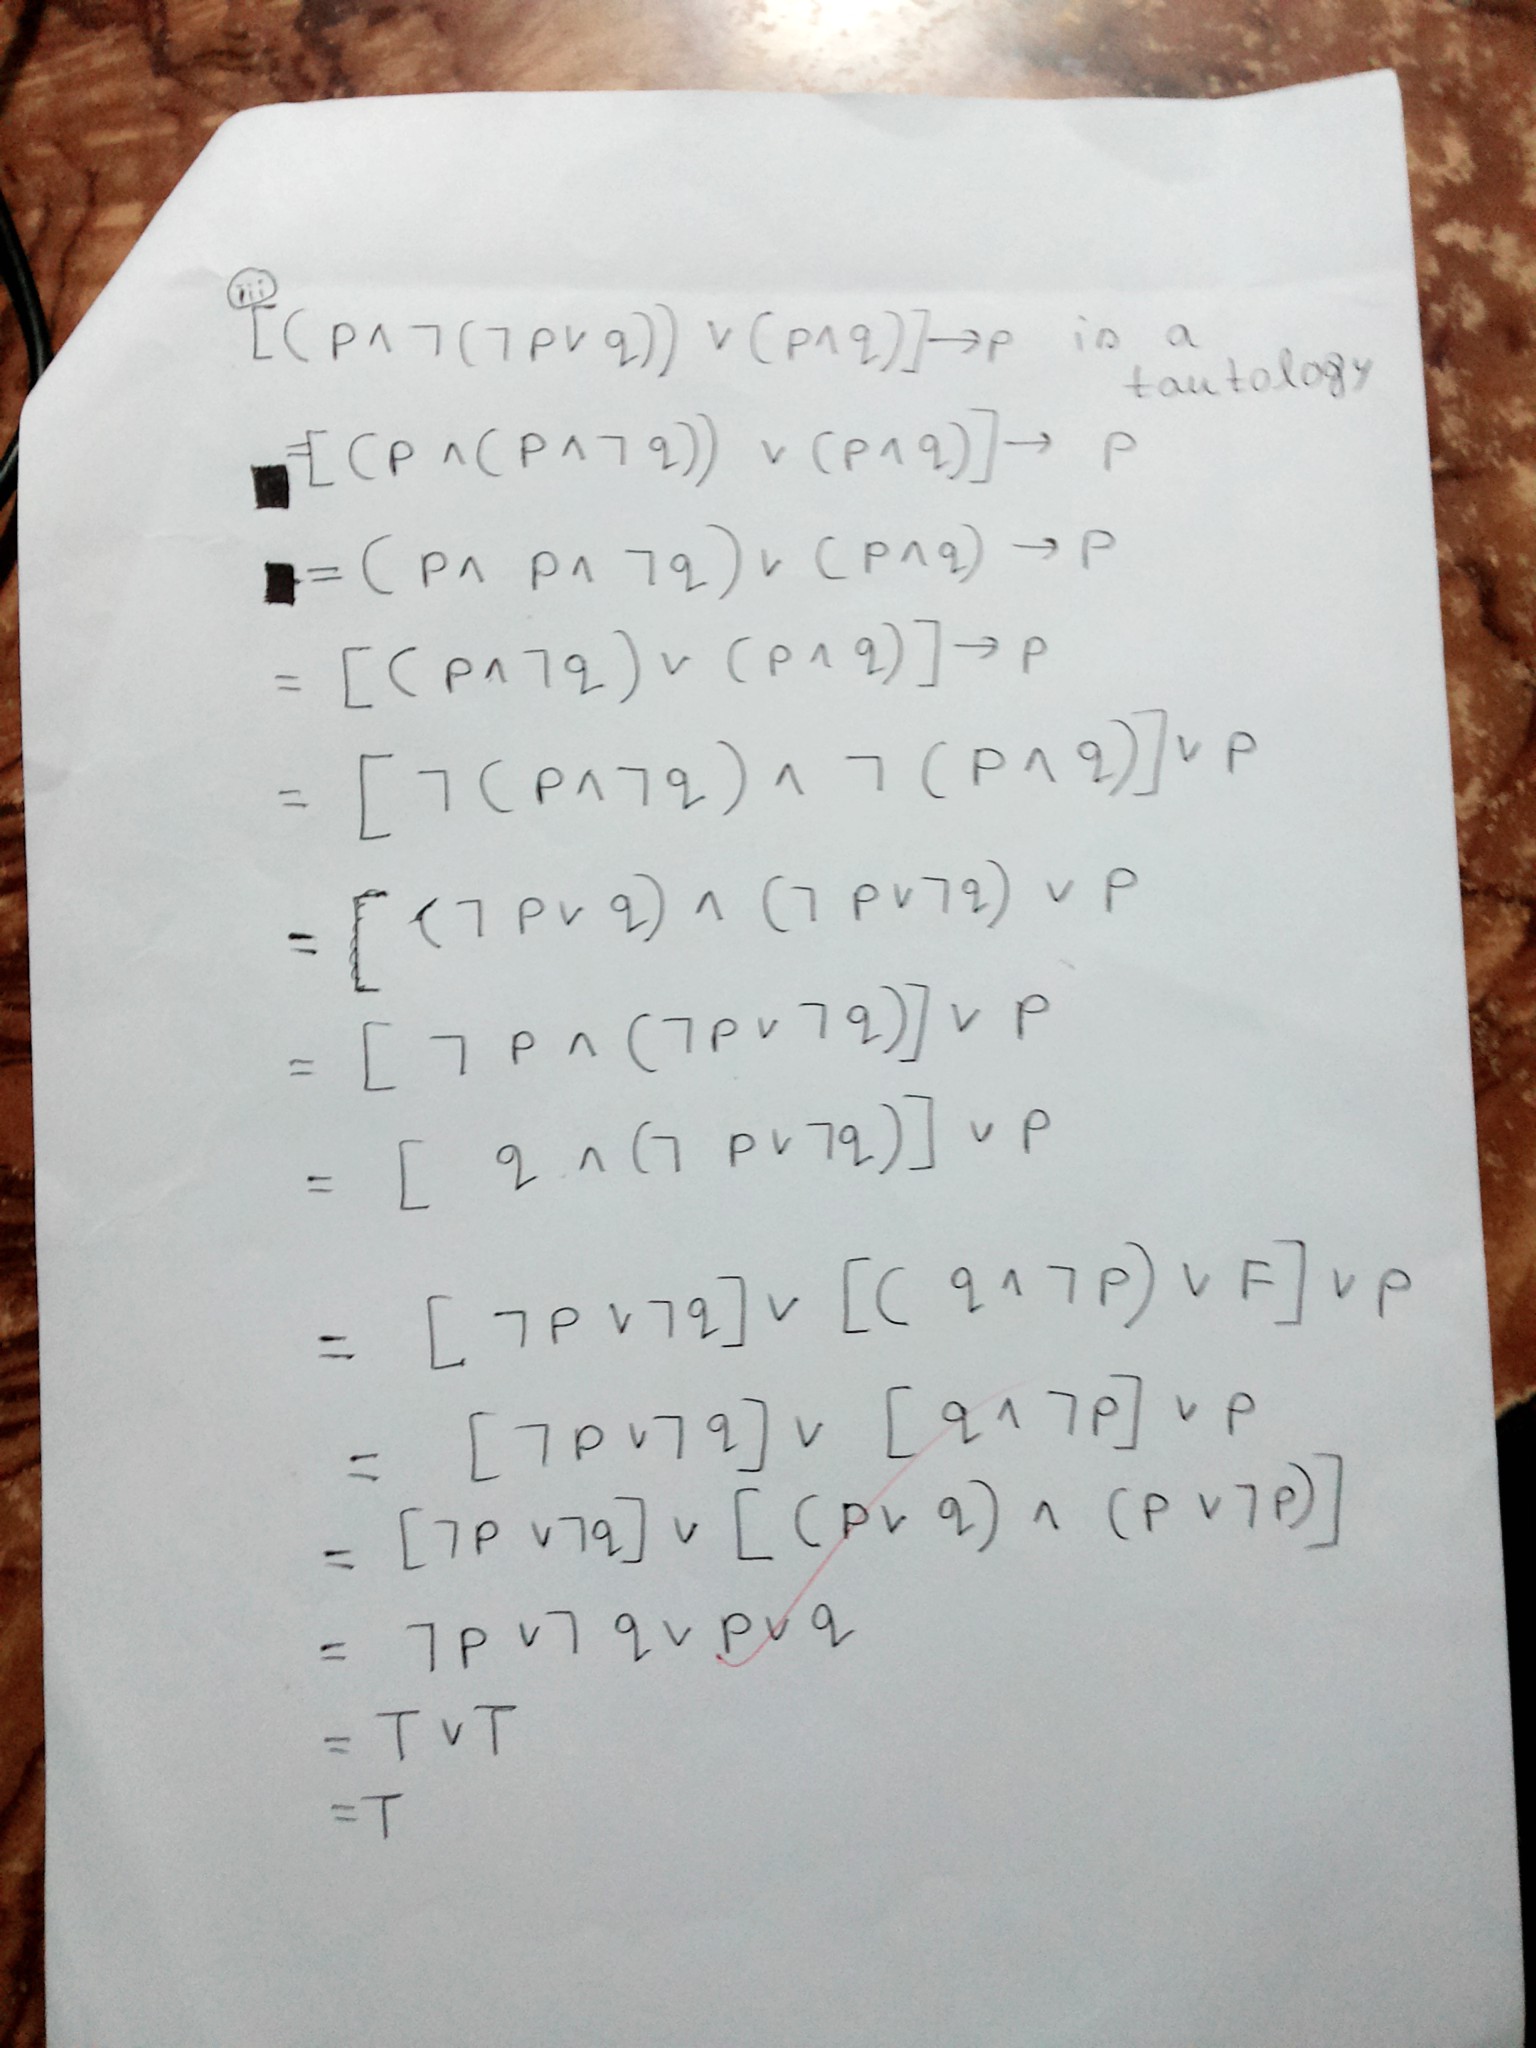 iii
[(p∧¬(¬p∨q)) ∨ (p∧q)]→p is a tautology
=[(p ∧(p∧¬q)) ∨ (p∧q)]→ p
= (p∧ p∧ ¬q) ∨ (p∧q) → p
= [(p∧¬q) ∨ (p∧q)]→p
= [¬(p∧¬q) ∧ ¬(p∧q)]∨p
= [(¬p∨q) ∧ (¬p∨¬q) ∨ p
= [¬p ∧ (¬p∨¬q)] ∨ p
= [ q ∧ (¬p∨¬q)] ∨ p
= [¬p ∨¬q] ∨ [(q∧¬p) ∨ F] ∨ p
= [¬p∨¬q] ∨ [q∧¬p] ∨ p
= [¬p ∨¬q] ∨ [(p∨q) ∧ (p∨¬p)]
= ¬p ∨¬q ∨ p∨q
= T ∨ T
= T